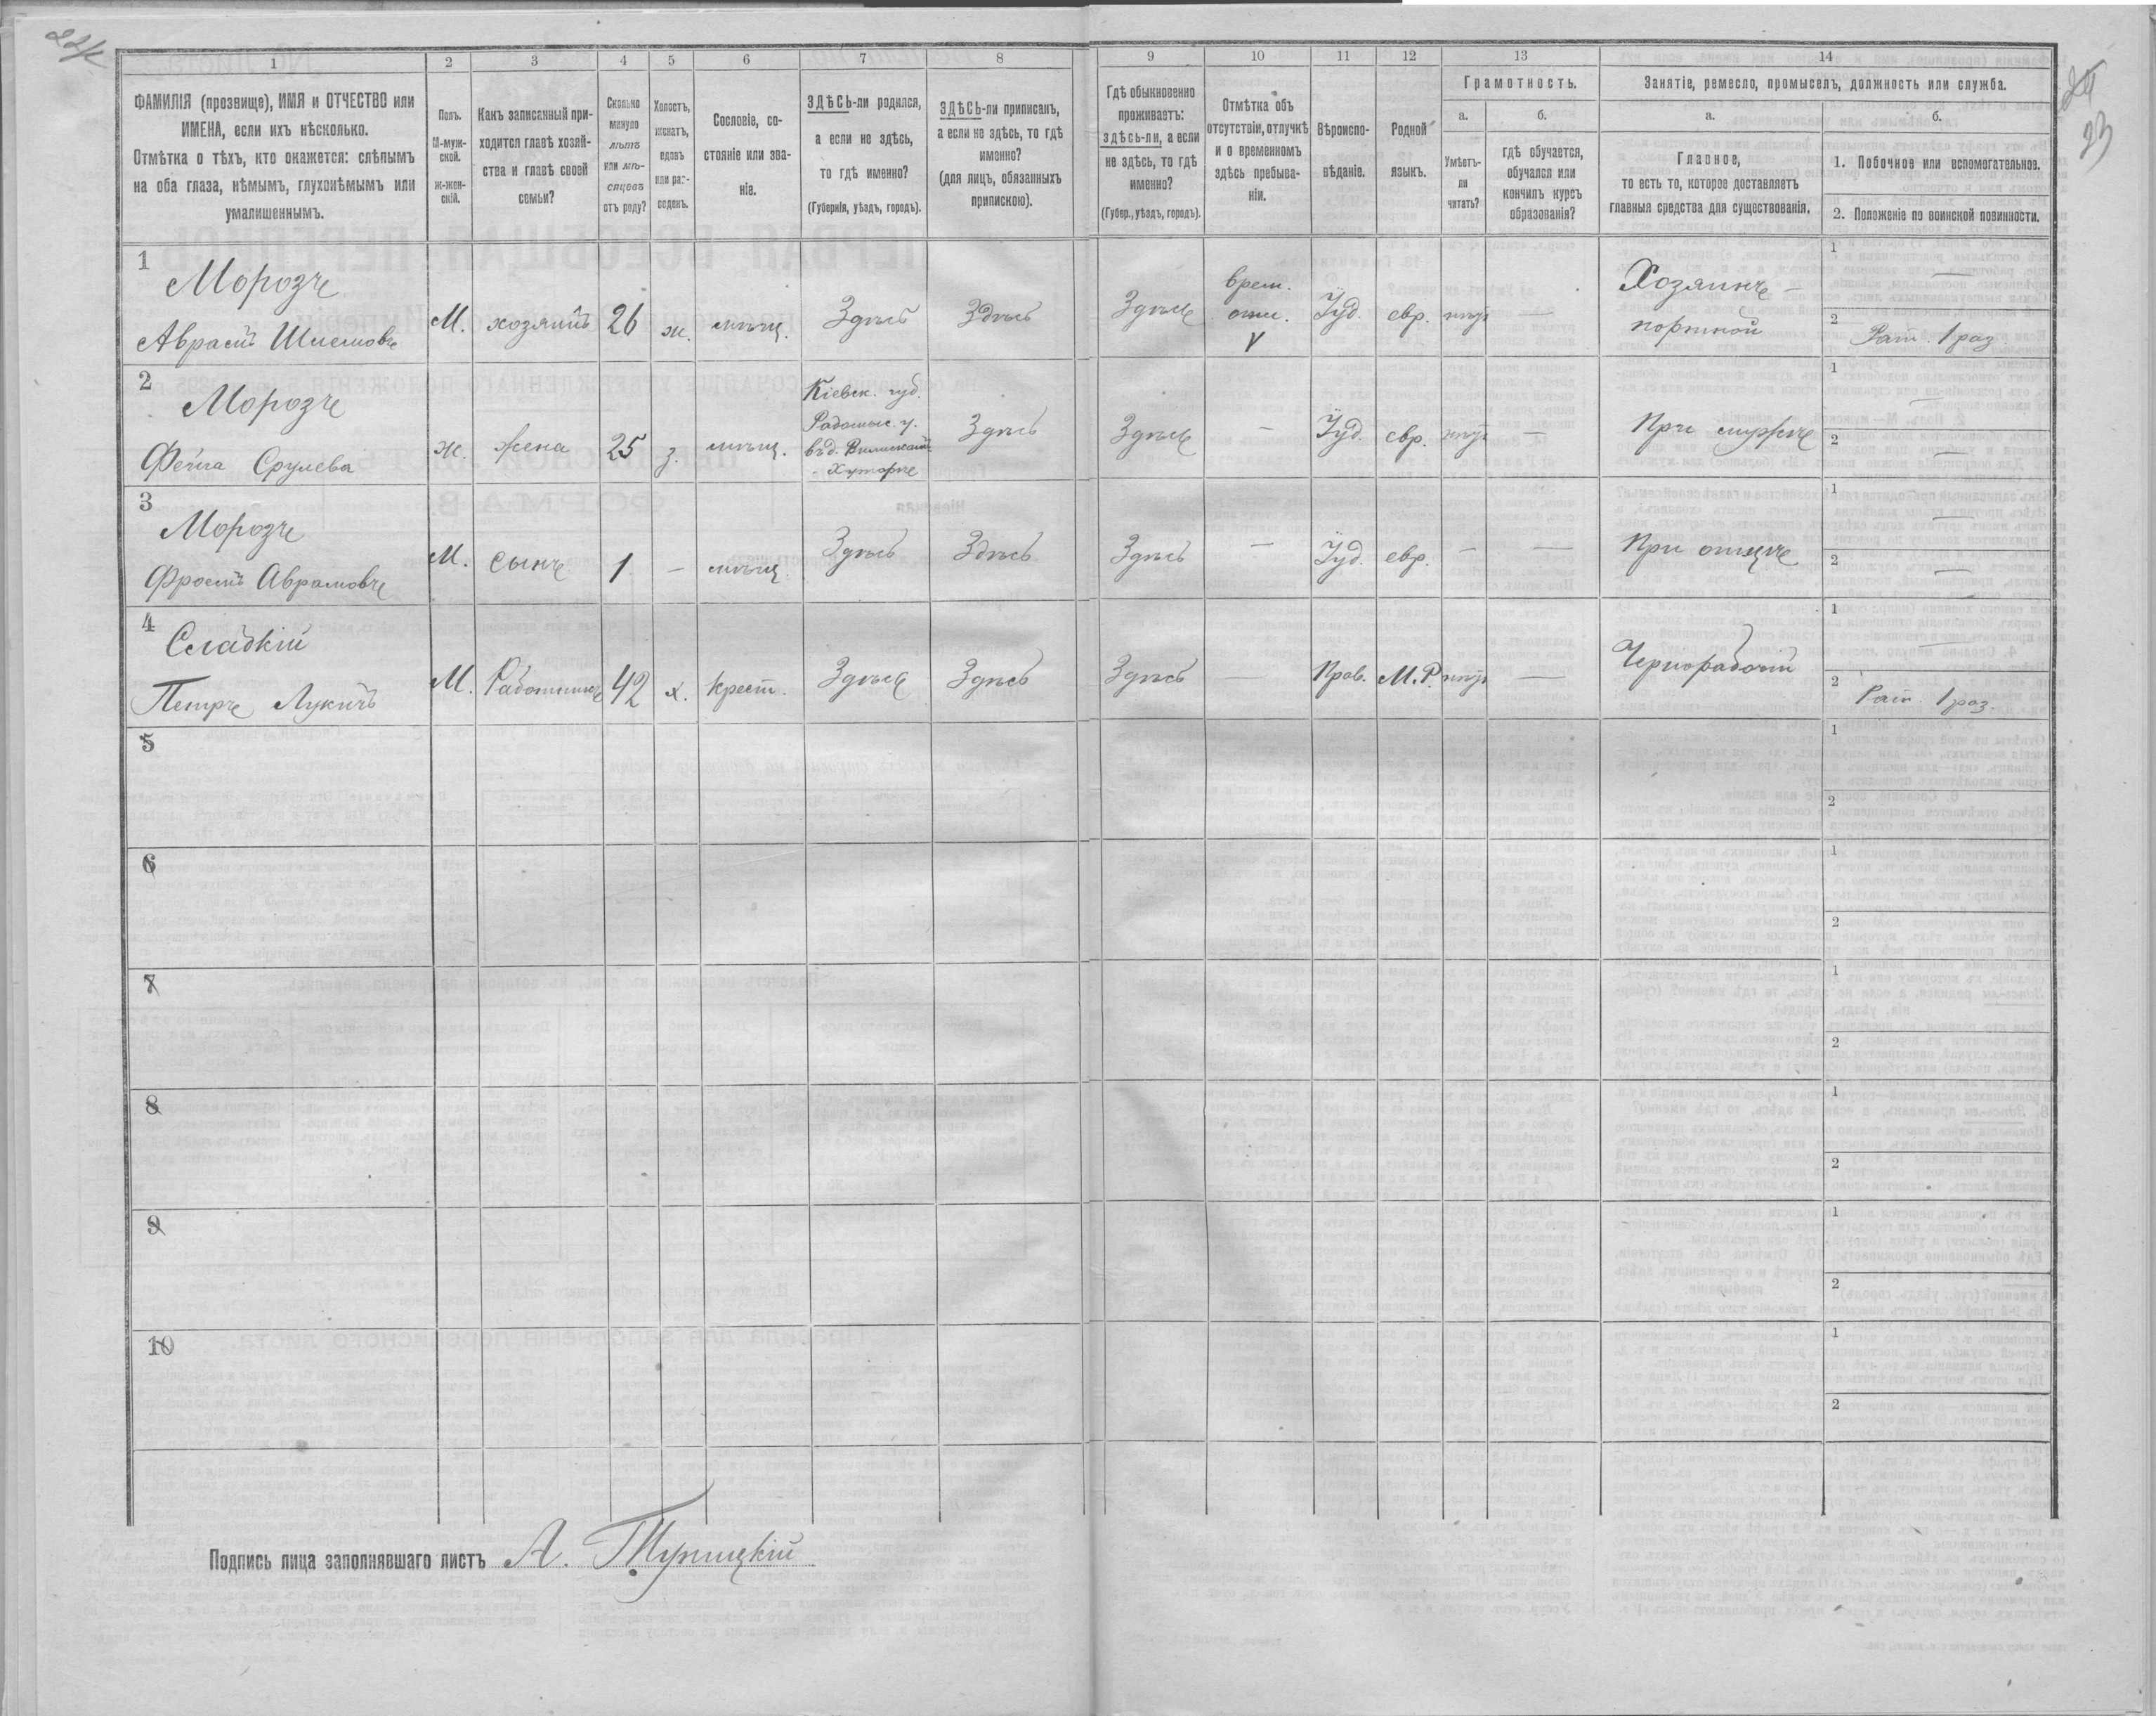 1 2 3 4 5 6 7 8 9 10 11 12 13 14
ФАМИЛІЯ (прозвище), ИМЯ и ОТЧЕСТВО или
ИМЕНА, если ихъ нѣсколько.
Отмѣтка о тѣхъ, кто окажется: слѣпымъ
на оба глаза, нѣмымъ, глухонѣмымъ или
умалишеннымъ.
Полъ.
М-муж-
ской.
ж-жен-
скій.
Какъ записанный при-
ходится главѣ хозяй-
ства и главѣ своей
семьи?
Сколько
минуло
лѣтъ
или мѣ-
сяцевъ
отъ роду?
Холостъ,
женатъ,
вдовъ
или раз-
веденъ.
Сословіе, со-
стояніе или зва-
ніе.
ЗДѢСЬ-ли родился,
а если не здѣсь,
то гдѣ именно?
(Губернія, уѣздъ, городъ).
ЗДѢСЬ-ли приписанъ,
а если не здѣсь, то гдѣ
именно?
(для лицъ, обязанныхъ
припискою).
Гдѣ обыкновенно
проживаетъ:
здѣсь-ли, а если
не здѣсь, то гдѣ
именно?
(Губер., уѣздъ, городъ).
Отмѣтка объ
отсутствіи, отлучкѣ
и о временномъ
здѣсь пребыва-
ніи.
Вѣроиспо-
вѣданіе.
Родной
языкъ.
Грамотность.
а.
Умѣетъ-
ли
читать?
б.
гдѣ обучается,
обучался или
кончилъ курсъ
образованія?
Занятіе, ремесло, промыселъ, должность или служба.
а.
Главное,
то есть то, которое доставляетъ
главныя средства для существованія.
б.
1. Побочное или вспомогательное.
2. Положеніе по воинской повинности.
23
1
Морозъ
Аврамъ Шлемовъ
М. хозяинъ 26 ж. мѣщ. Здѣсь Здѣсь Здѣсь
врем.
отл.
Іуд. евр. —
Хозяинъ —
портной
1 —
2 Рат. 1 раз.
2
Морозъ
Фейга Срулева
ж. жена 25 з. мѣщ.
Кіевск. губ.
Радомыс. у.
Хуторъ
Здѣсь Здѣсь — Іуд. евр. —
При мужѣ
1 —
2 —
3
Морозъ
Аврамовъ
М. сынъ 1 — мѣщ. Здѣсь Здѣсь Здѣсь — Іуд. евр. — —
При отцѣ
1 —
2 —
4
Сладкій
Петръ Лукичъ
М. Работникъ 42 х. крест. Здѣсь Здѣсь Здѣсь — Прав. М.Р. —
Чернорабочій
1 —
2 Рат. 1 раз.
5
1
2
6
1
2
7
1
2
8
1
2
9
1
2
10
1
2
Подпись лица заполнявшаго листъ А.